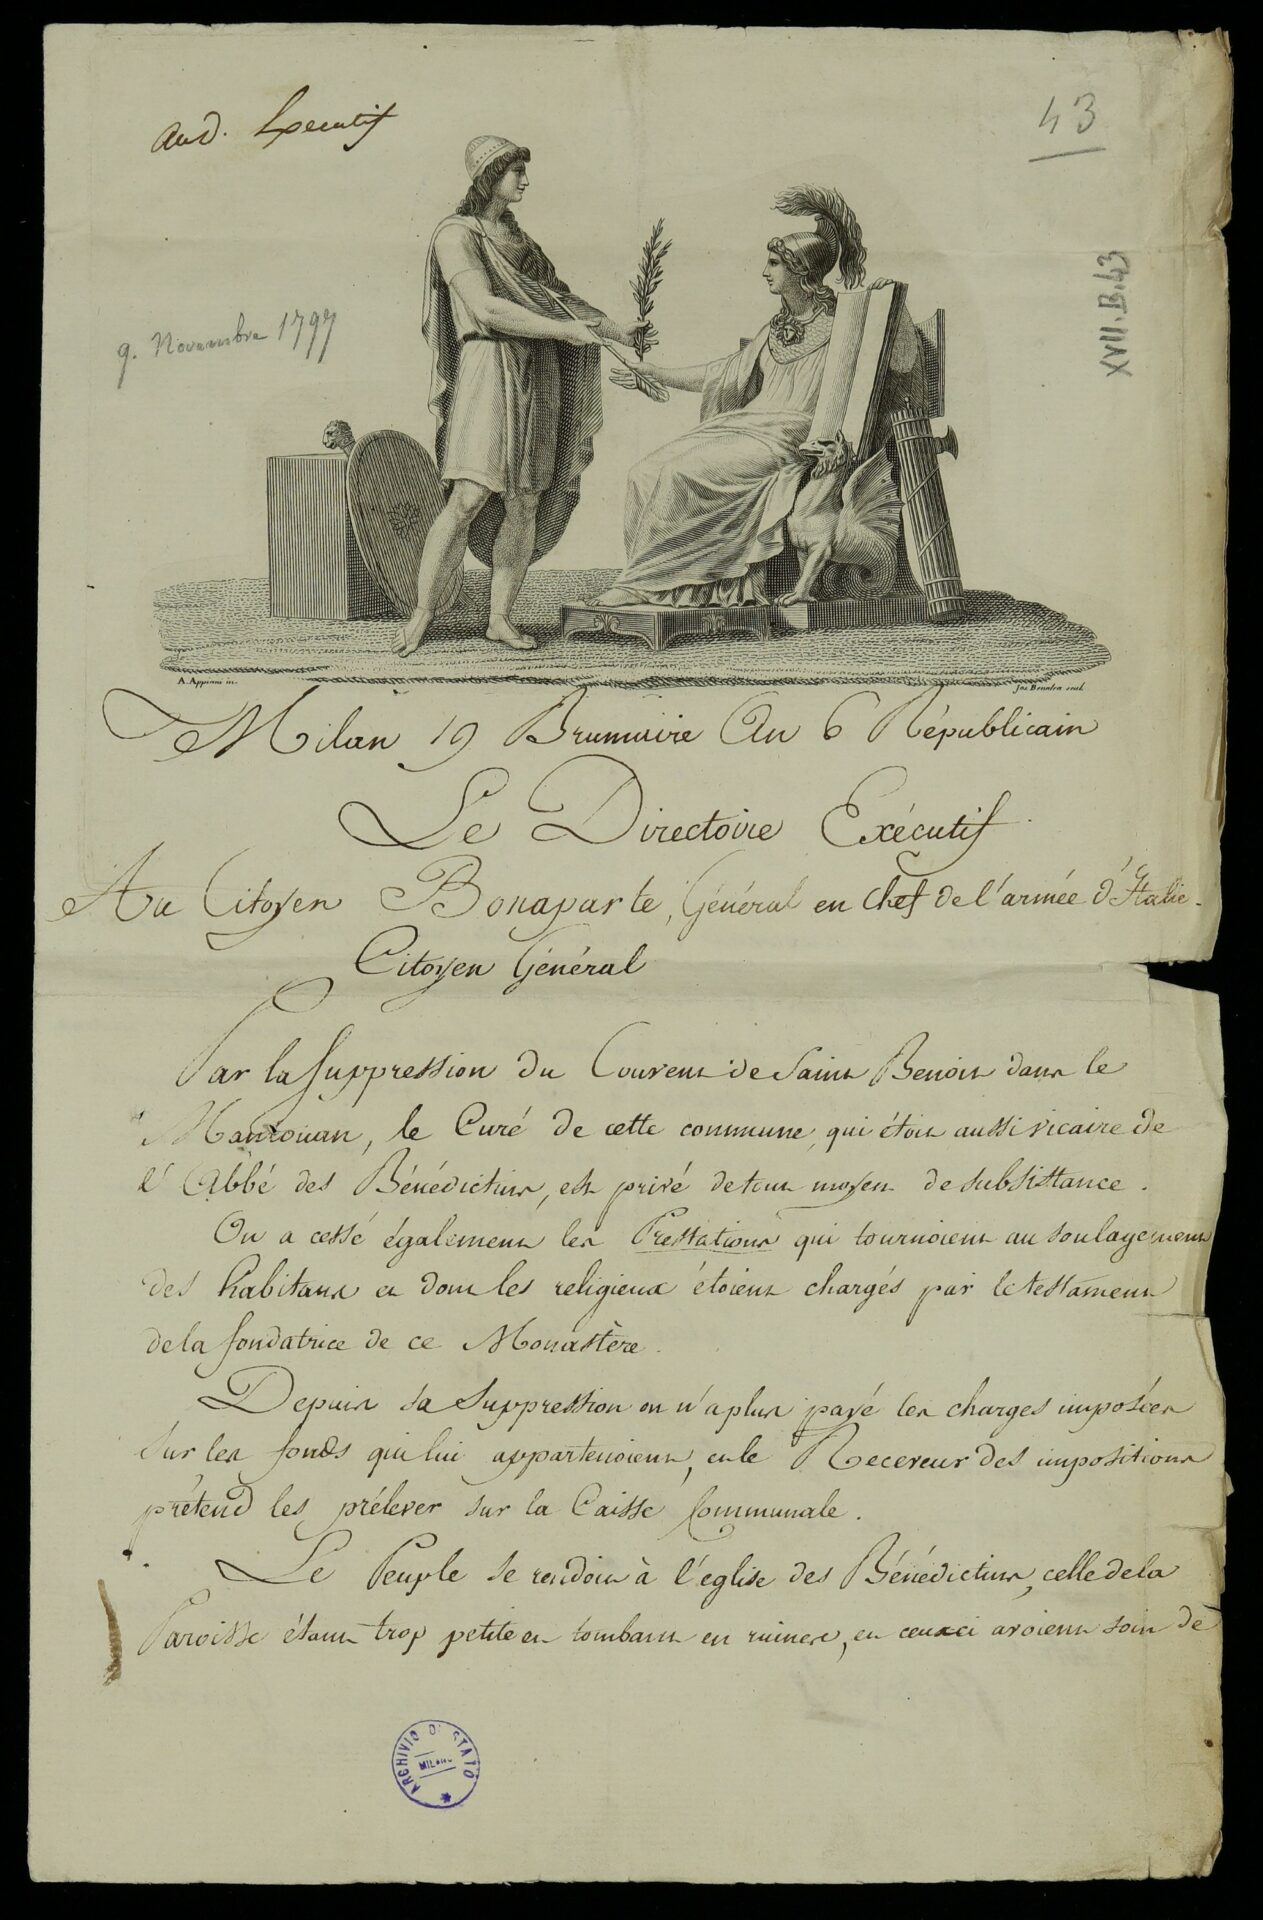 43
9. Novembre 1797
XVII.B.43
A. Appiani in.
Milan 19 Brumaire An 6 Républicain
Le Directoire Exécutif
Au Citoyen Bonaparte, Général en Chef de l'armée d'Italie.
Citoyen Général
Par la Suppression du Couvent de Saint Benoit dans le
Mantouan, le Curé de cette commune, qui étoit aussi vicaire de
l'Abbé des Bénédictins, est privé de tout moyen de subsistance.
On a cessé également les Prestations qui tournoient au soulagement
des habitans et dont les religieux étoient chargés par le testament
de la fondatrice de ce Monastère.
Depuis sa Suppression on n'a plus payé les charges imposées
sur les fonds qui lui appartenoient, et le Receveur des impositions
prétend les prélever sur la Caisse Communale.
Le Peuple se rendoit à l'église des Bénédictins, celle de la
Paroisse étant trop petite et tombant en ruines, et ceux ci avoient soin de
ARCHIVIO DI STATO
MILANO